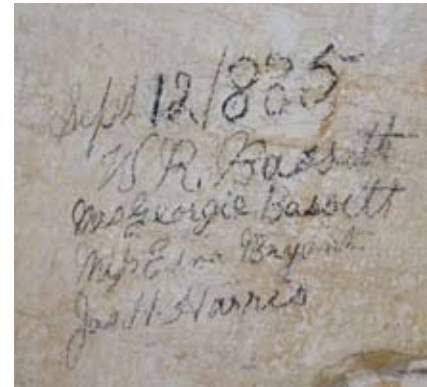 Sept 12/885
W R. Bassett
Mrs Georgie Bassett
Miss Edna Bryant
Jas. H. Harris